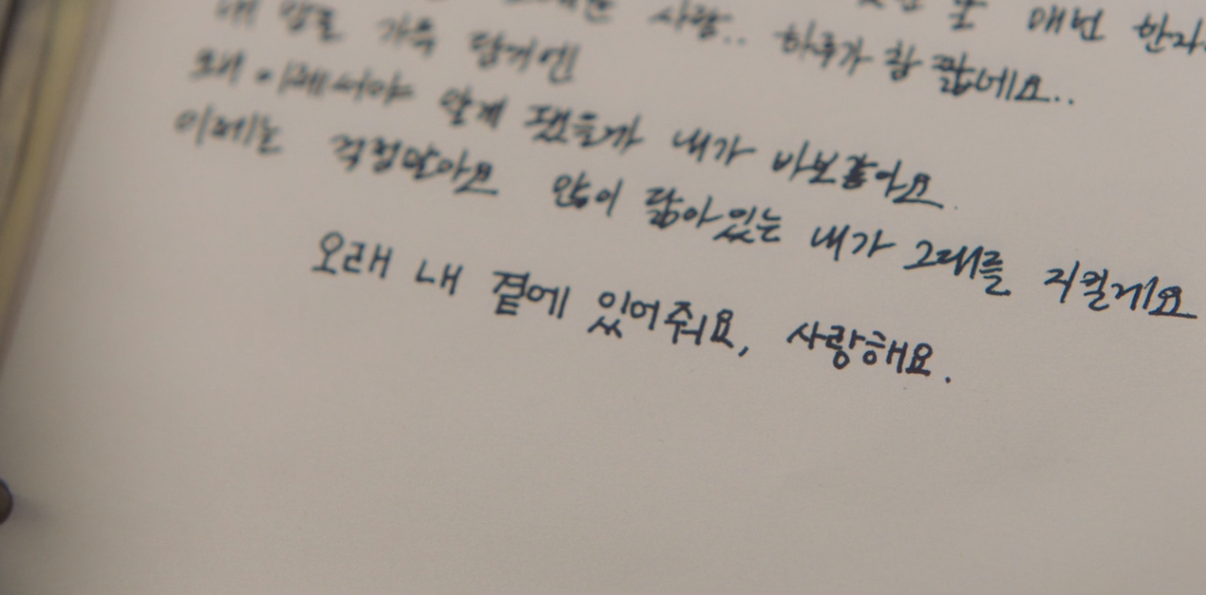 사랑.. 매번 한자
내 맘을 가득 담기엔 하루가 참 짧네요..
왜 이제서야 알게 됐을까 내가 바보같아요
이제는 걱정말아요 많이 닮아있는 내가 그대를 지킬게요
오래 내 곁에 있어줘요, 사랑해요.